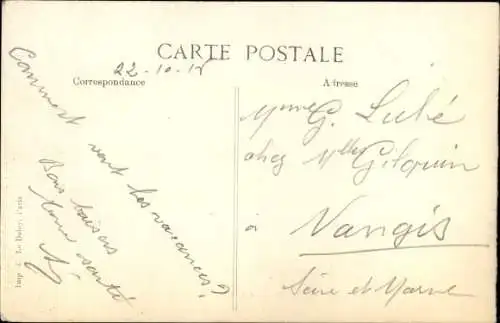 CARTE POSTALE
22-10-15
Correspondance
Adresse
Comment vont les vacances?
Bons baisers
bonne santé
Mme G. Luhé
chez Mlle Gilquin
à Nangis
Seine et Marne
Imp. Le Deley, Paris